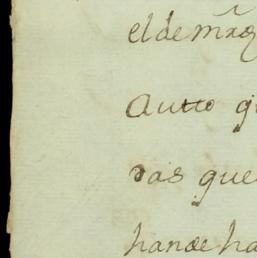 el de mrã
Autto q
ras que
hande ha